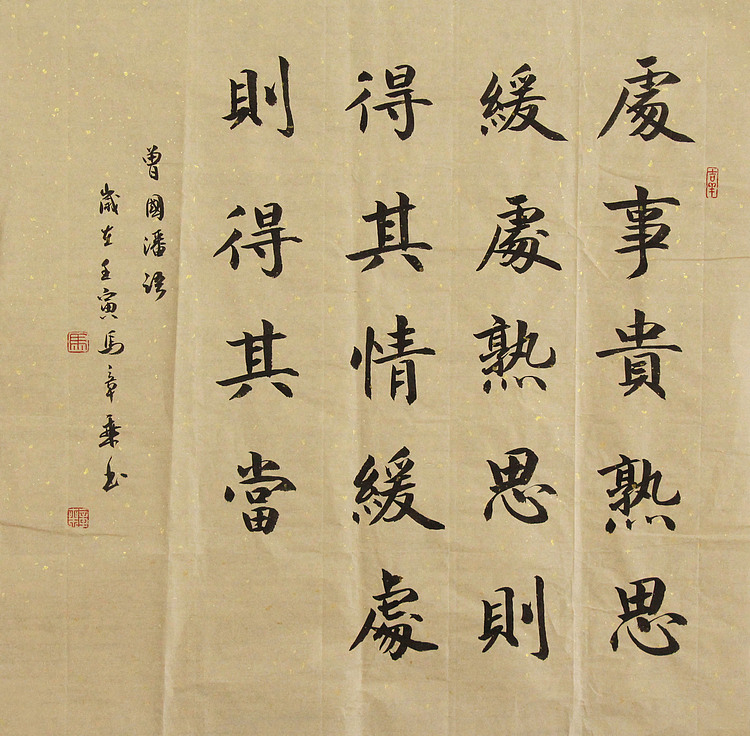 處事貴熟思
緩處熟思則
得其情緩處
則得其當
曾國潘語
歲在壬寅馬章乘书
馬